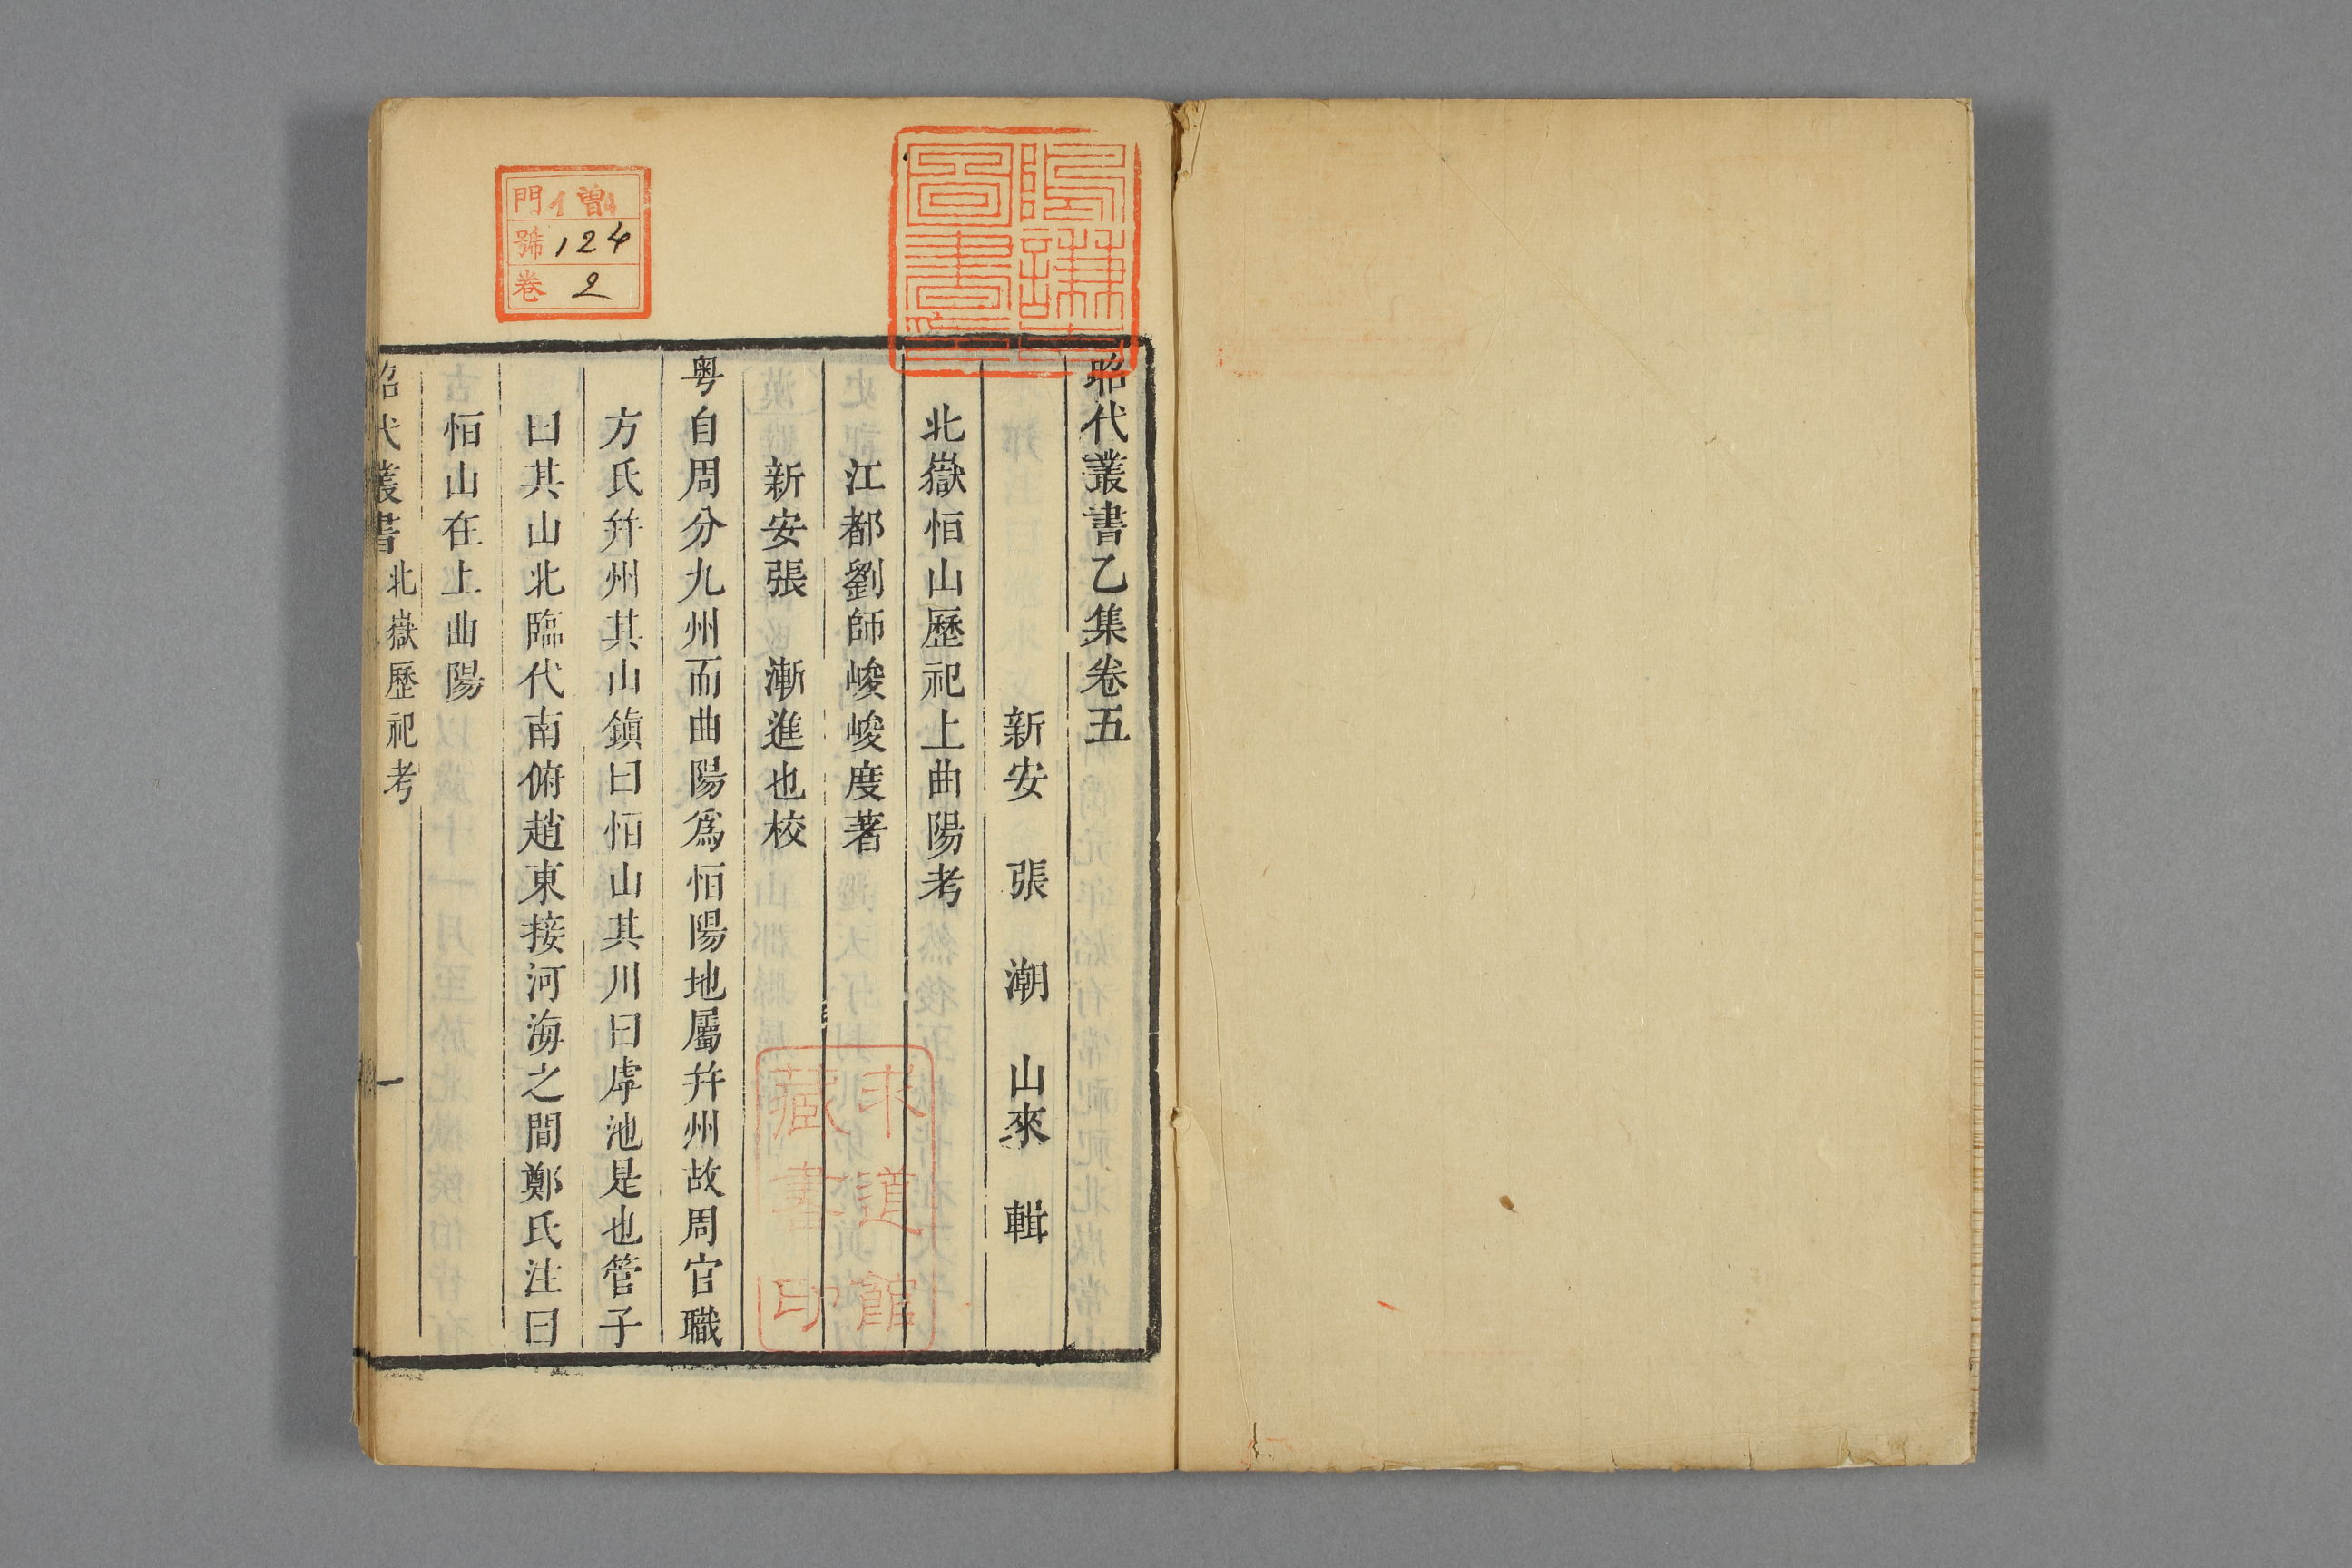 昭代叢書乙集卷五
新安 張 潮 山來 輯
北嶽恒山歷祀上曲陽考
江都劉師峻峻度著
新安張 漸進也校
粤自周分九州而曲陽爲恒陽地屬幷州故周官職
方氏幷州其山鎭曰恒山其川曰虖池是也管子
曰其山北臨代南俯趙東接河海之間鄭氏注曰
恒山在上曲陽
昭代叢書 北嶽歷祀考
一
門 曽
號 124
卷 2
求道館
藏書印